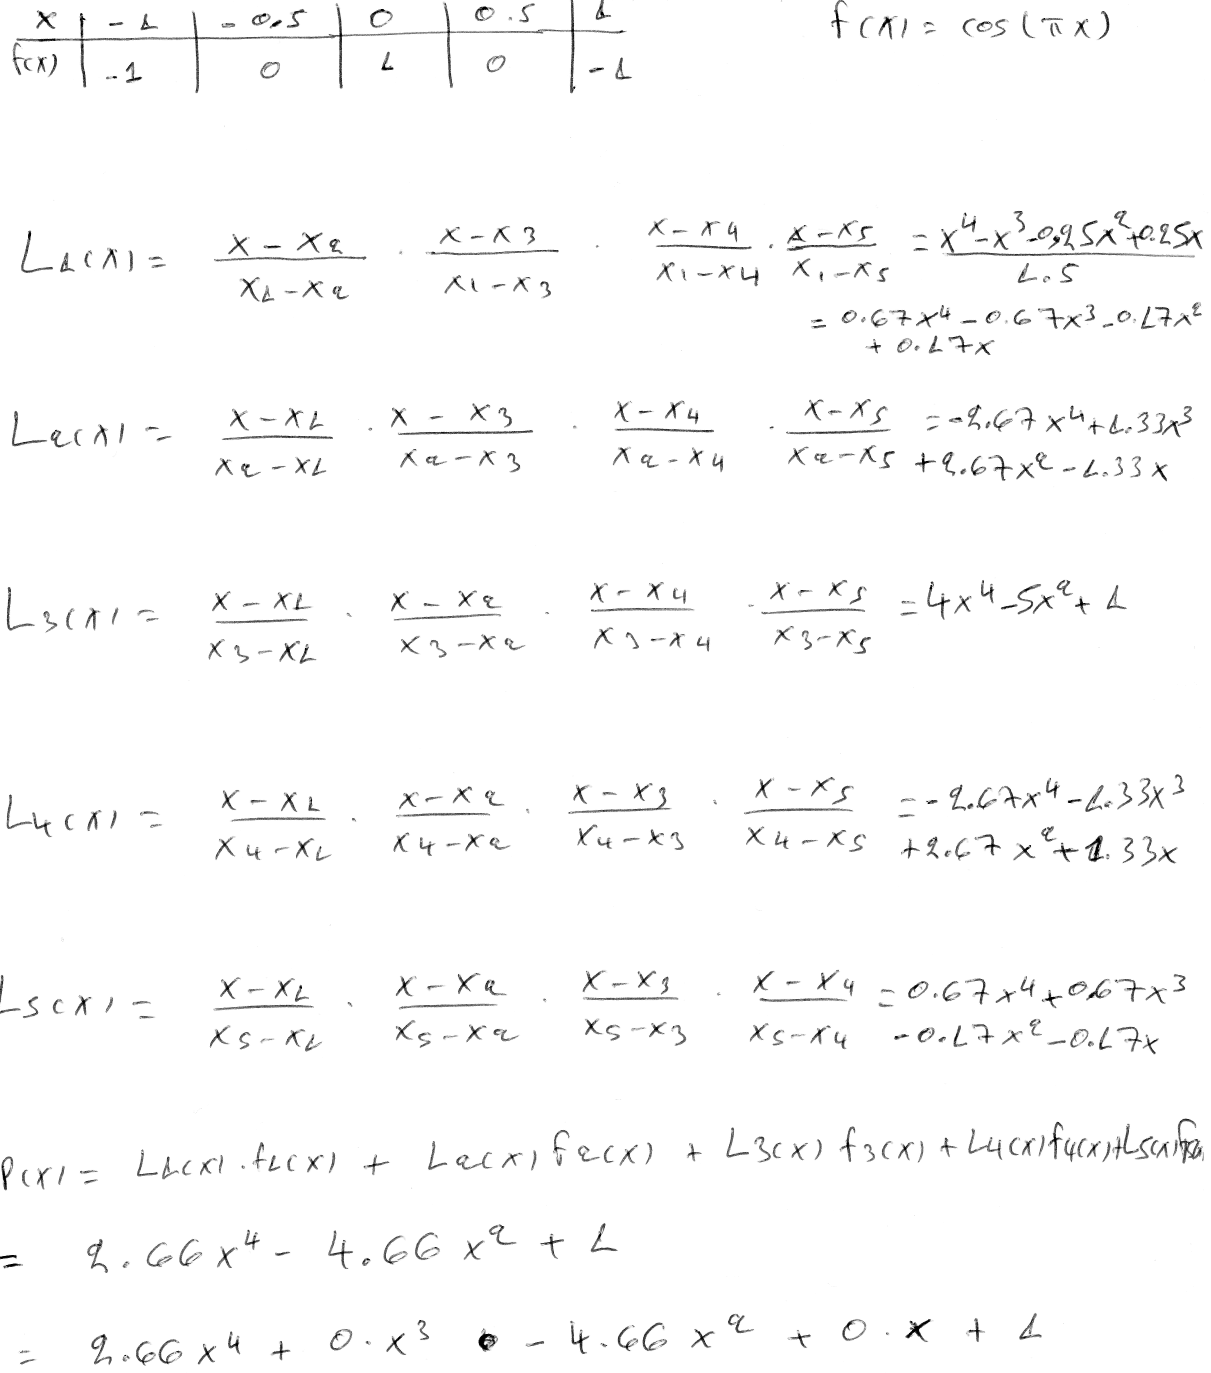 x | -1 | -0.5 | 0 | 0.5 | 1 f(x) = cos(πx)
f(x) | -1 | 0 | 1 | 0 | -1
L1(x) = (x-x2)/(x1-x2) · (x-x3)/(x1-x3) · (x-x4)/(x1-x4) · (x-x5)/(x1-x5) = (x^4-x^3-0.25x^2+0.25x)/1.5
= 0.67x^4-0.67x^3-0.17x^2
+ 0.17x
L2(x) = (x-x1)/(x2-x1) · (x-x3)/(x2-x3) · (x-x4)/(x2-x4) · (x-x5)/(x2-x5) = -2.67x^4+1.33x^3
+2.67x^2-1.33x
L3(x) = (x-x1)/(x3-x1) · (x-x2)/(x3-x2) · (x-x4)/(x3-x4) · (x-x5)/(x3-x5) = 4x^4-5x^2+1
L4(x) = (x-x1)/(x4-x1) · (x-x2)/(x4-x2) · (x-x3)/(x4-x3) · (x-x5)/(x4-x5) = -2.67x^4-1.33x^3
+2.67x^2+1.33x
L5(x) = (x-x1)/(x5-x1) · (x-x2)/(x5-x2) · (x-x3)/(x5-x3) · (x-x4)/(x5-x4) = 0.67x^4+0.67x^3
-0.17x^2-0.17x
P(x) = L1(x).f1(x) + L2(x)f2(x) + L3(x)f3(x) + L4(x)f4(x)+L5(x)
= 2.66x^4 - 4.66x^2 + 1
= 2.66x^4 + 0.x^3 - 4.66x^2 + 0.x + 1